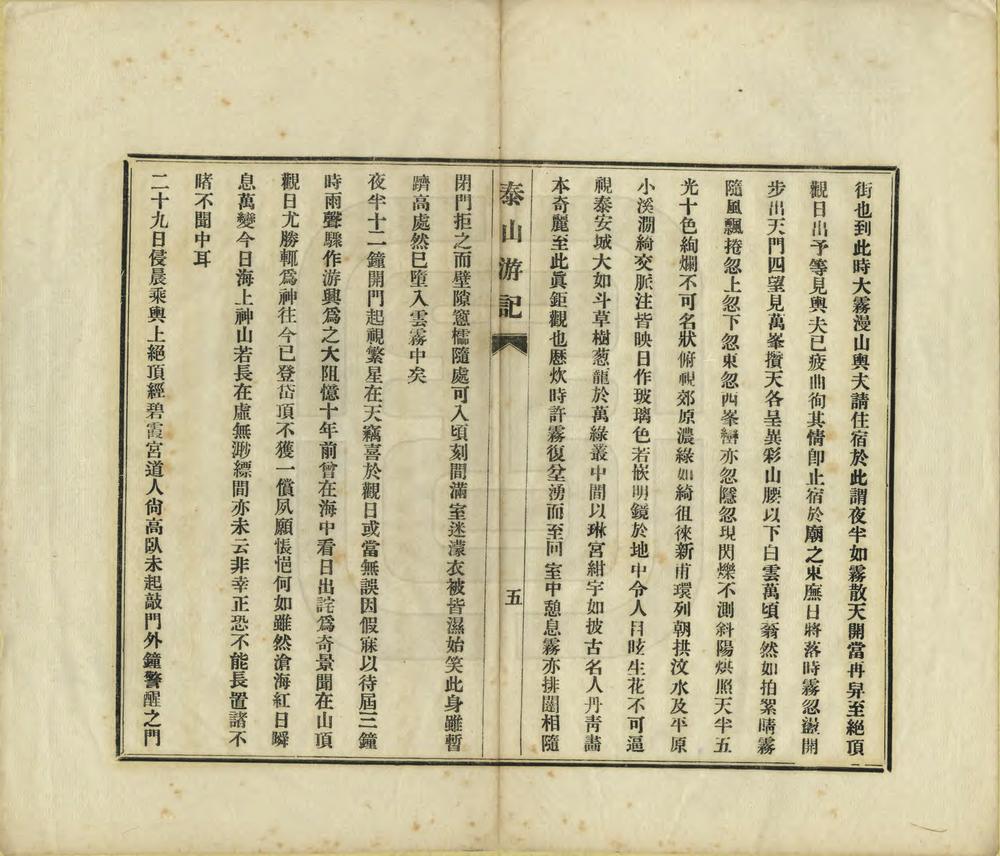 街也到此時大霧漫山輿夫請住宿於此謂夜半如霧散天開當再舁至絕頂
觀日出予等見輿夫已疲曲徇其情卽止宿於廟之東廡日將落時霧忽盪開
步出天門四望見萬峯攢天各呈異彩山腰以下白雲萬頃蓊然如拍絮晴霧
隨風飄捲忽上忽下忽東忽西峯巒亦忽隱忽現閃爍不測斜陽烘照天半五
光十色絢爛不可名狀俯視郊原濃綠如綺徂徠新甫環列朝拱汶水及平原
小溪澗綺交脈注皆映日作玻璃色若嵌明鏡於地中令人目眩生花不可逼
視泰安城大如斗草樹葱蘢於萬綠叢中間以琳宮紺宇如披古名人丹靑畵
本奇麗至此眞鉅觀也歷炊時許霧復坌湧而至回室中憩息霧亦排闥相隨
泰山游記
五
閉門拒之而壁隙窻櫺隨處可入頃刻間滿室迷濛衣被皆濕始笑此身雖暫
躋高處然已墮入雲霧中矣
夜半十二鐘開門起視繁星在天竊喜於觀日或當無誤因假寐以待屆三鐘
時雨聲驟作游興爲之大阻憶十年前曾在海中看日出詫爲奇景聞在山頂
觀日尤勝輒爲神往今已登岱頂不獲一償夙願悵悒何如雖然滄海紅日瞬
息萬變今日海上神山若長在虛無渺縹間亦未云非幸正恐不能長置諸不
睹不聞中耳
二十九日侵晨乘輿上絕頂經碧霞宮道人尙高臥未起敲門外鐘警醒之門